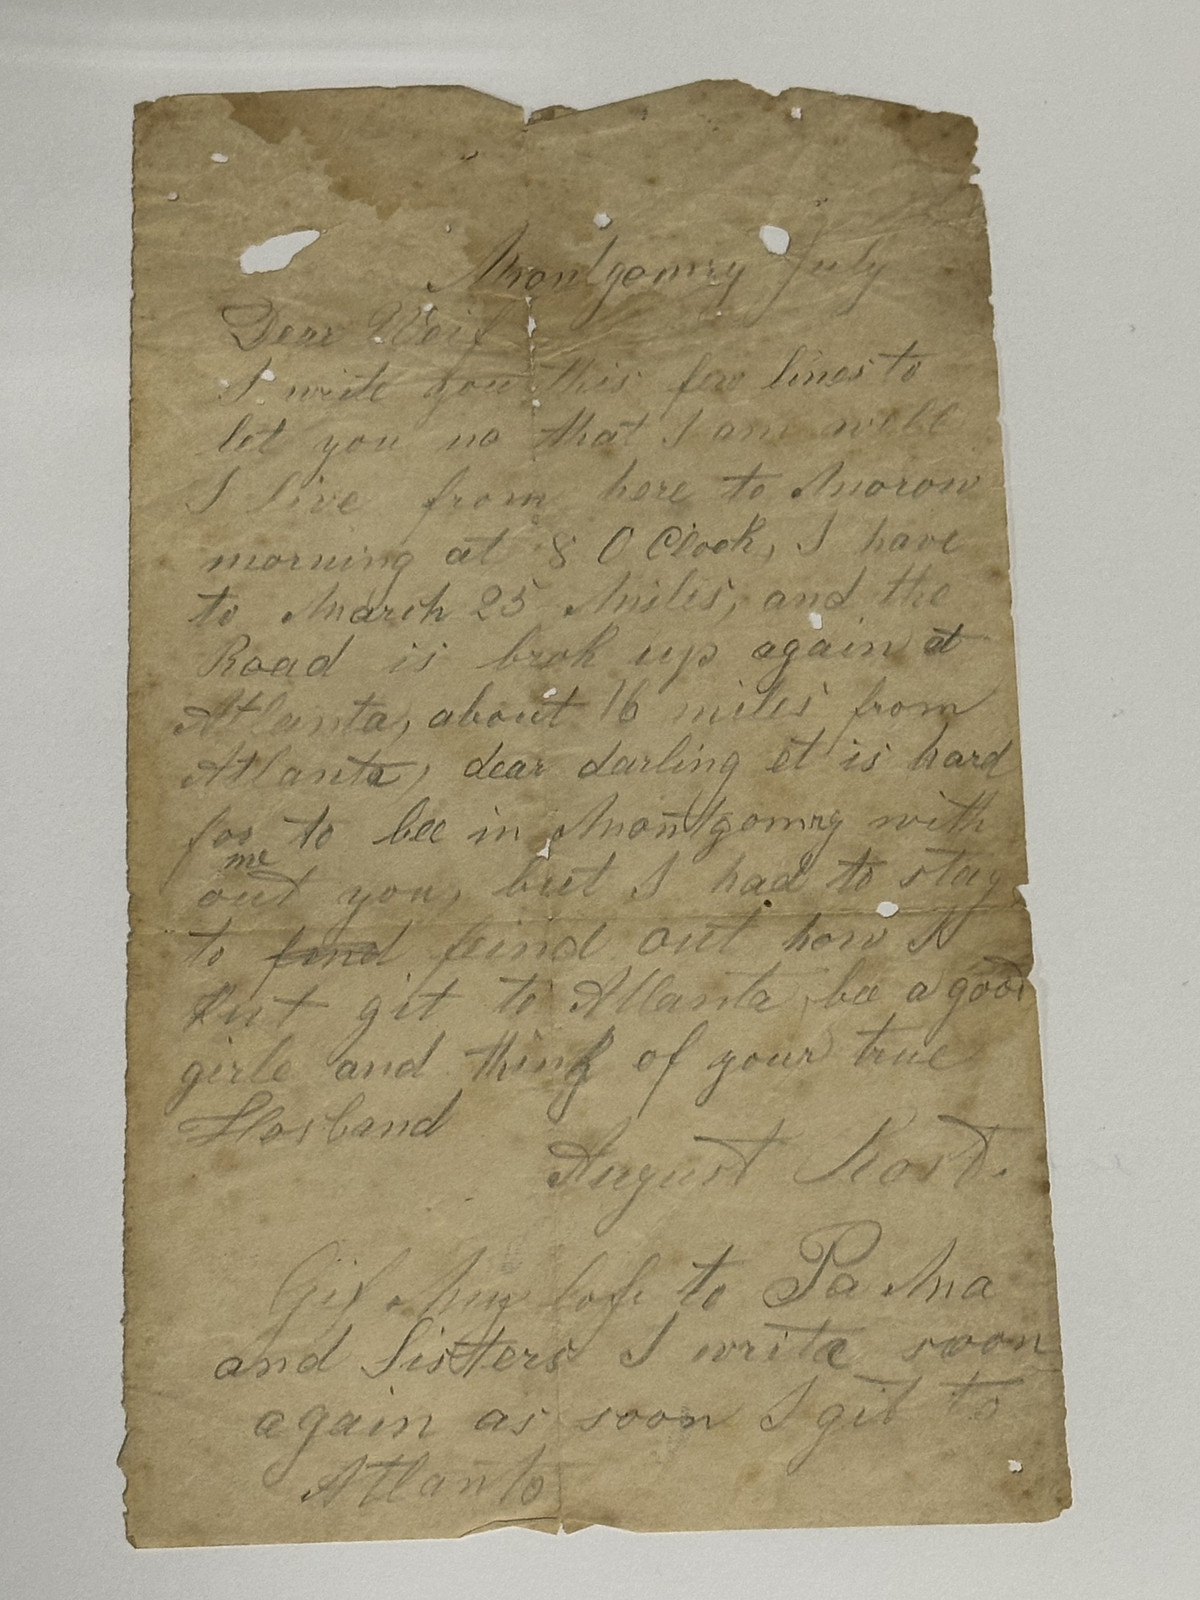 Montgomry July
Dear Weif
I write you this few lines to
let you no that I am well
I live from here to Morow
morning at 8 O Clock, I have
to March 25 Miles, and the
Road is brok up again at
Atlanta, about 16 miles from
Atlanta, dear darling et is hard
for to bee in Montgomry with
me
out you, but I had to stay
to find feind out how I
Kut git to Atlanta bee a good
girle and think of your true
Hosband
August Kost.
Gif My lofe to Pa Ma
and Sisters I write soon
again as soon I git to
Atlanta